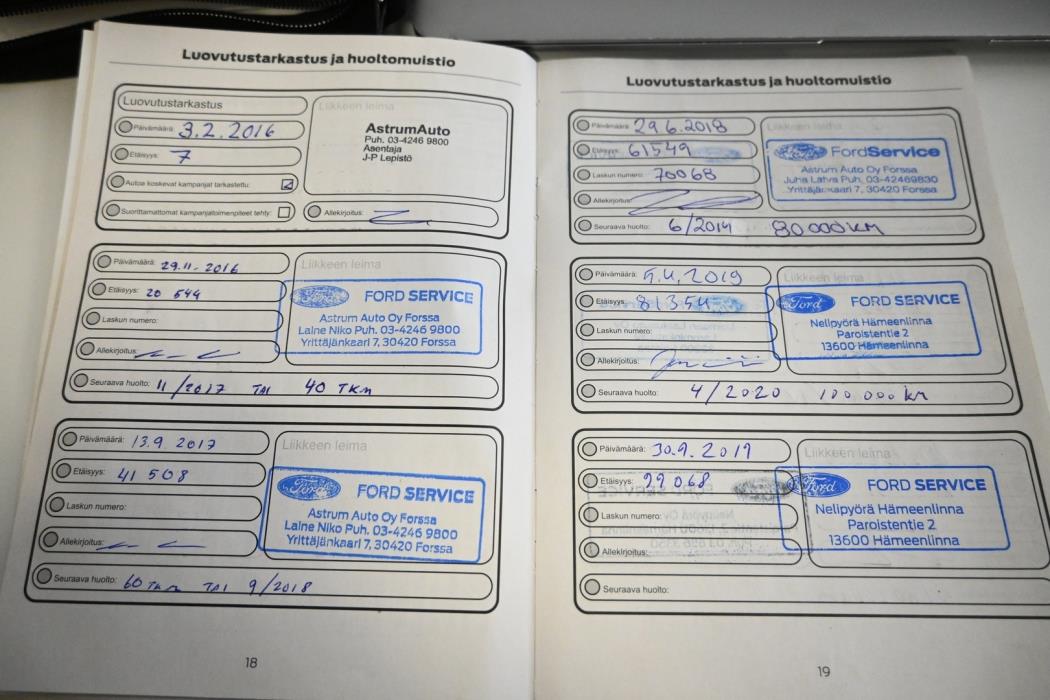 Luovutustarkastus ja huoltomuistio
Luovutustarkastus
Liikkeen leima
Päivämäärä: 3.2.2016
AstrumAuto
Puh. 03-4246 9800
Asentaja
J-P Lepistö
Etäisyys: 7
Autoa koskevat kampanjat tarkastettu:
Suorittamattomat kampanjatoimenpiteet tehty:
Allekirjoitus:
Päivämäärä: 29.11.2016
Liikkeen leima
Etäisyys: 20 544
Ford FORD SERVICE
Astrum Auto Oy Forssa
Laine Niko Puh. 03-4246 9800
Yrittäjänkaari 7, 30420 Forssa
Laskun numero:
Allekirjoitus:
Seuraava huolto: 11/2017 TAI 40 TKM
Päivämäärä: 13.9 2017
Liikkeen leima
Etäisyys: 41 508
Ford FORD SERVICE
Astrum Auto Oy Forssa
Laine Niko Puh. 03-4246 9800
Yrittäjänkaari 7, 30420 Forssa
Laskun numero:
Allekirjoitus:
Seuraava huolto: 60 TKM TAI 9/2018
18
Luovutustarkastus ja huoltomuistio
Päivämäärä: 29.6.2018
Liikkeen leima
Etäisyys: 61549
Ford FordService
Astrum Auto Oy Forssa
Juha Latva Puh. 03-42469830
Yrittäjänkaari 7, 30420 Forssa
Laskun numero: 70068
Allekirjoitus:
Seuraava huolto: 6/2019 80 000 KM
Päivämäärä: 5.4.2019
Liikkeen leima
Etäisyys: 81354
Ford FORD SERVICE
Nelipyörä Hämeenlinna
Paroistentie 2
13600 Hämeenlinna
Laskun numero:
Allekirjoitus:
Seuraava huolto: 4/2020 100 000 km
Päivämäärä: 30.9.2019
Liikkeen leima
Etäisyys: 99068
Ford FORD SERVICE
Nelipyörä Hämeenlinna
Paroistentie 2
13600 Hämeenlinna
Laskun numero:
Allekirjoitus:
Seuraava huolto:
19